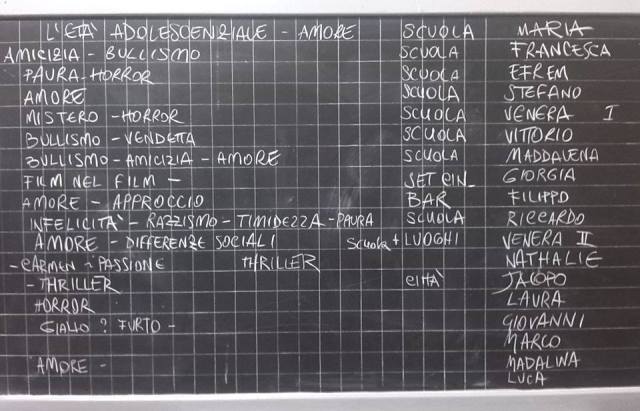 L'ETA' ADOLESCENZIALE - AMORE SCUOLA MARIA
AMICIZIA - BULLISMO SCUOLA FRANCESCA
PAURA-HORROR SCUOLA EFREM
AMORE SCUOLA STEFANO
MISTERO - HORROR SCUOLA VENERA I
BULLISMO - VENDETTA SCUOLA VITTORIO
BULLISMO - AMICIZIA - AMORE SCUOLA MADDALENA
FILM NEL FILM - SET CIN. GIORGIA
AMORE - APPROCCIO BAR FILIPPO
INFELICITA' - RAZZISMO - TIMIDEZZA - PAURA SCUOLA RICCARDO
AMORE - DIFFERENZE SOCIALI SCUOLA + LUOGHI VENERA II
- CARMEN - PASSIONE THRILLER NATHALIE
- THRILLER CITTÀ JACOPO
HORROR LAURA
GIALLO ? FURTO - GIOVANNI
MARCO
AMORE - MADALINA
LUCA